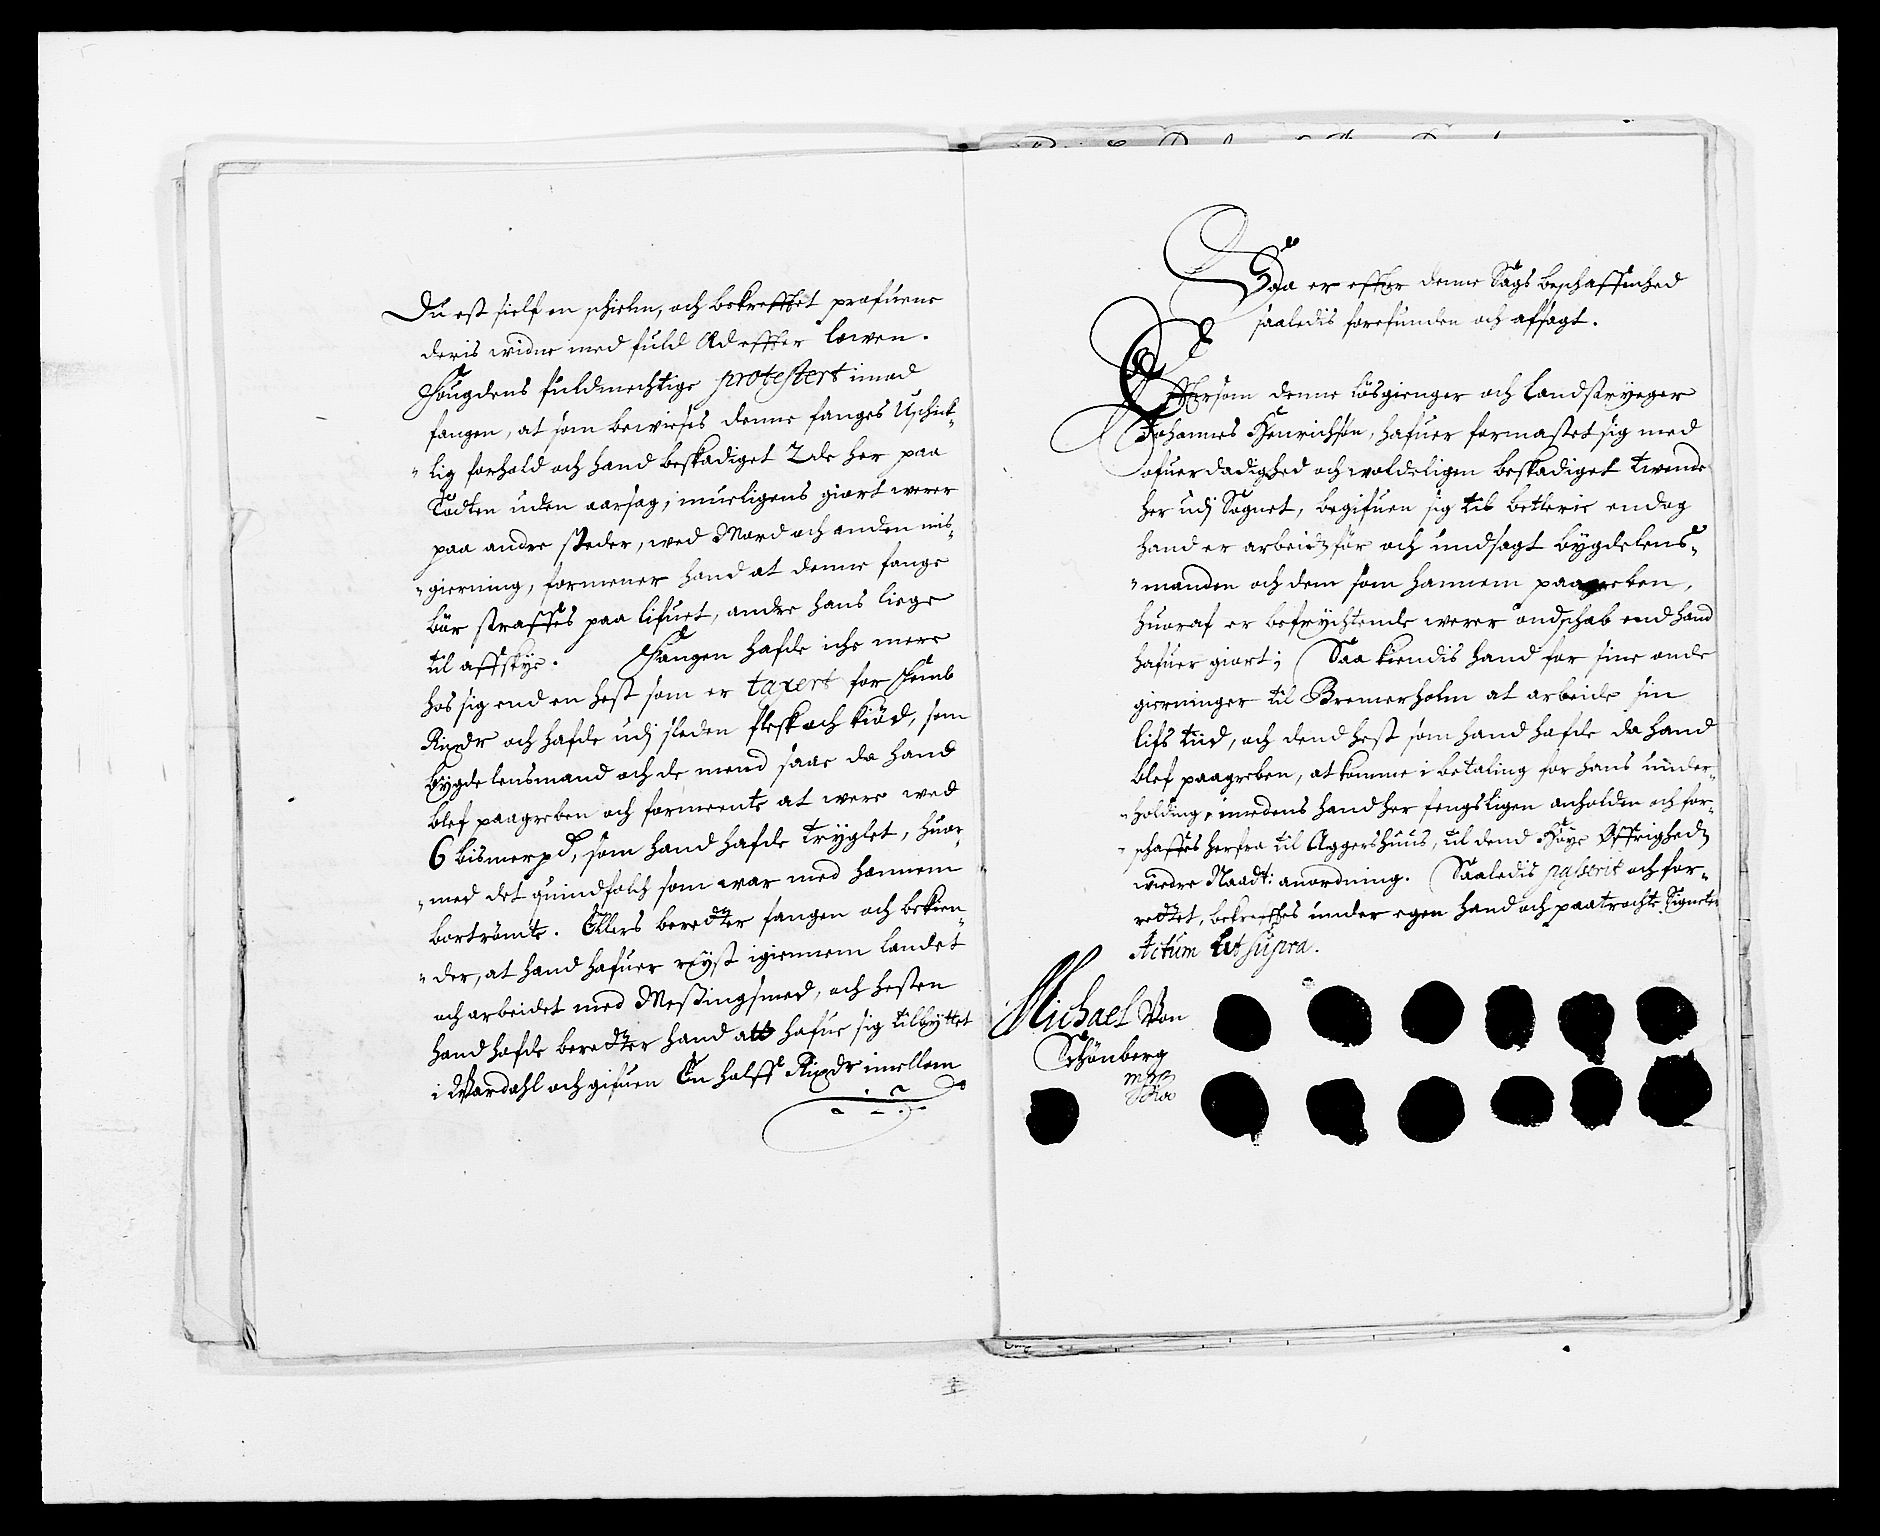 Du est sielf en schielm, och bekrefftet prefuene
deris vidne med fuld Ad effter lowen.
Fougdens fuldmechtige protestert imod
fangen, at som bewieses denne fanges uschick-
lig forhold och hand beskadiget 2de her paa
Todten uden aarsag, mueligens giort werer
paa andre steder, med Mord och anden mis-
gierning, formener hand at denne fange
bör straffes paa lifuet, andre hans liege
til affskye. Fangen hafde iche mere
hos sig end en hest som er taxert for Femb
Rixdr och hafde udj sleden flesk och kiöd, som
bygdelensmand och de mend saae da hand
blef paagreben och formeente at were wed
6 bismerpd, som hand hafde tryglet, huor-
med det quindfolch som war med hannem
bortrömte. Ellers beretter fangen och bekien-
der, at hand hafuer reyst igiennem landet
och arbeidet med Messingsmed, och hesten
hand hafde beretter hand att hafue sig tilbyttet
i Wardahl och gifuen En halff Rixdr imellem
Daa er effter denne Sags beschaffenhed
saaledis forefunden och afsagt.
Effersom denne lösgienger och landstryeger
Johannes Henrichsön, hafuer formastet sig med
ofuerdadighed och woldeligen beskadiget twende
her udj Sognet, begifuen sig til betlerie endog
hand er arbeidsför och undsagt bygdelens-
manden och dem som hannem paagreben,
huoraf er befrychtende werer ondschab end hand
hafuer giort; Saa kiendis hand for sine onde
gierninger til Bremerholm at arbeide sin
lifs tid, och dend hest som hand hafde da hand
blef paagreben, at komme i betaling for hans under-
holding, imedens hand her fengsligen anholden och for-
schaffes herfra til Aggershuus, til dend Höye Öfrigheds
widre Naadt: anordning. Saaledis passerit och for-
rettet, bekreffes under egen hand och paatrochte Signeter
Actum Ut supra.
Michael Von
Schönberg
mpp